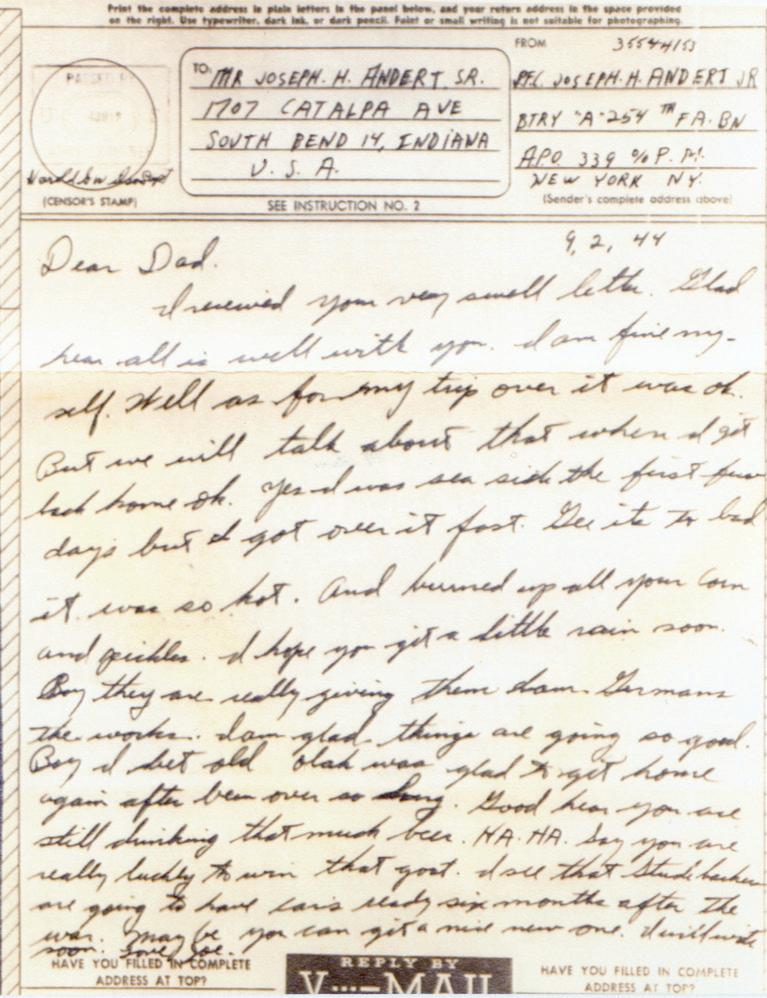 Print the complete address in plain letters in the panel below, and your return address in the space provided
on the right. Use typewriter, dark ink, or dark pencil. Faint or small writing is not suitable for photographing.
FROM 35544153
TO: MR JOSEPH. H. ANDERT SR.
1707 CATALPA AVE
SOUTH BEND 14, INDIANA
U. S. A.
PFC. JOSEPH. H. ANDERT JR
BTRY "A" 254 TH FA. BN
APO 339 % P. M.
NEW YORK NY.
(Sender's complete address above)
PASSED BY
(CENSOR'S STAMP)
SEE INSTRUCTION NO. 2
9, 2, 44
Dear Dad.
I received your very swell letter. Glad
hear all is well with you. I am fine my-
self. Well as for my trip over it was ok.
But we will talk about that when I get
back home ok. Yes I was sea sick the first few
days but I got over it fast. Gee its to bad
it was so hot. And burned up all your corn
and pickles. I hope you get a little rain soon.
Boy they are really giving them dam Germans
the works. I am glad things are going so good.
Boy I bet old was glad to get home
again after been over so long. Good hear you are
still drinking that much beer. HA. HA. Say you are
really luckly to win that goat. I see that Studebaker
are going to have cars ready six months after the
war. May be you can get a nice new one. I will write
soon. Love Joe.
HAVE YOU FILLED IN COMPLETE
ADDRESS AT TOP?
REPLY BY
V···—MAIL
HAVE YOU FILLED IN COMPLETE
ADDRESS AT TOP?